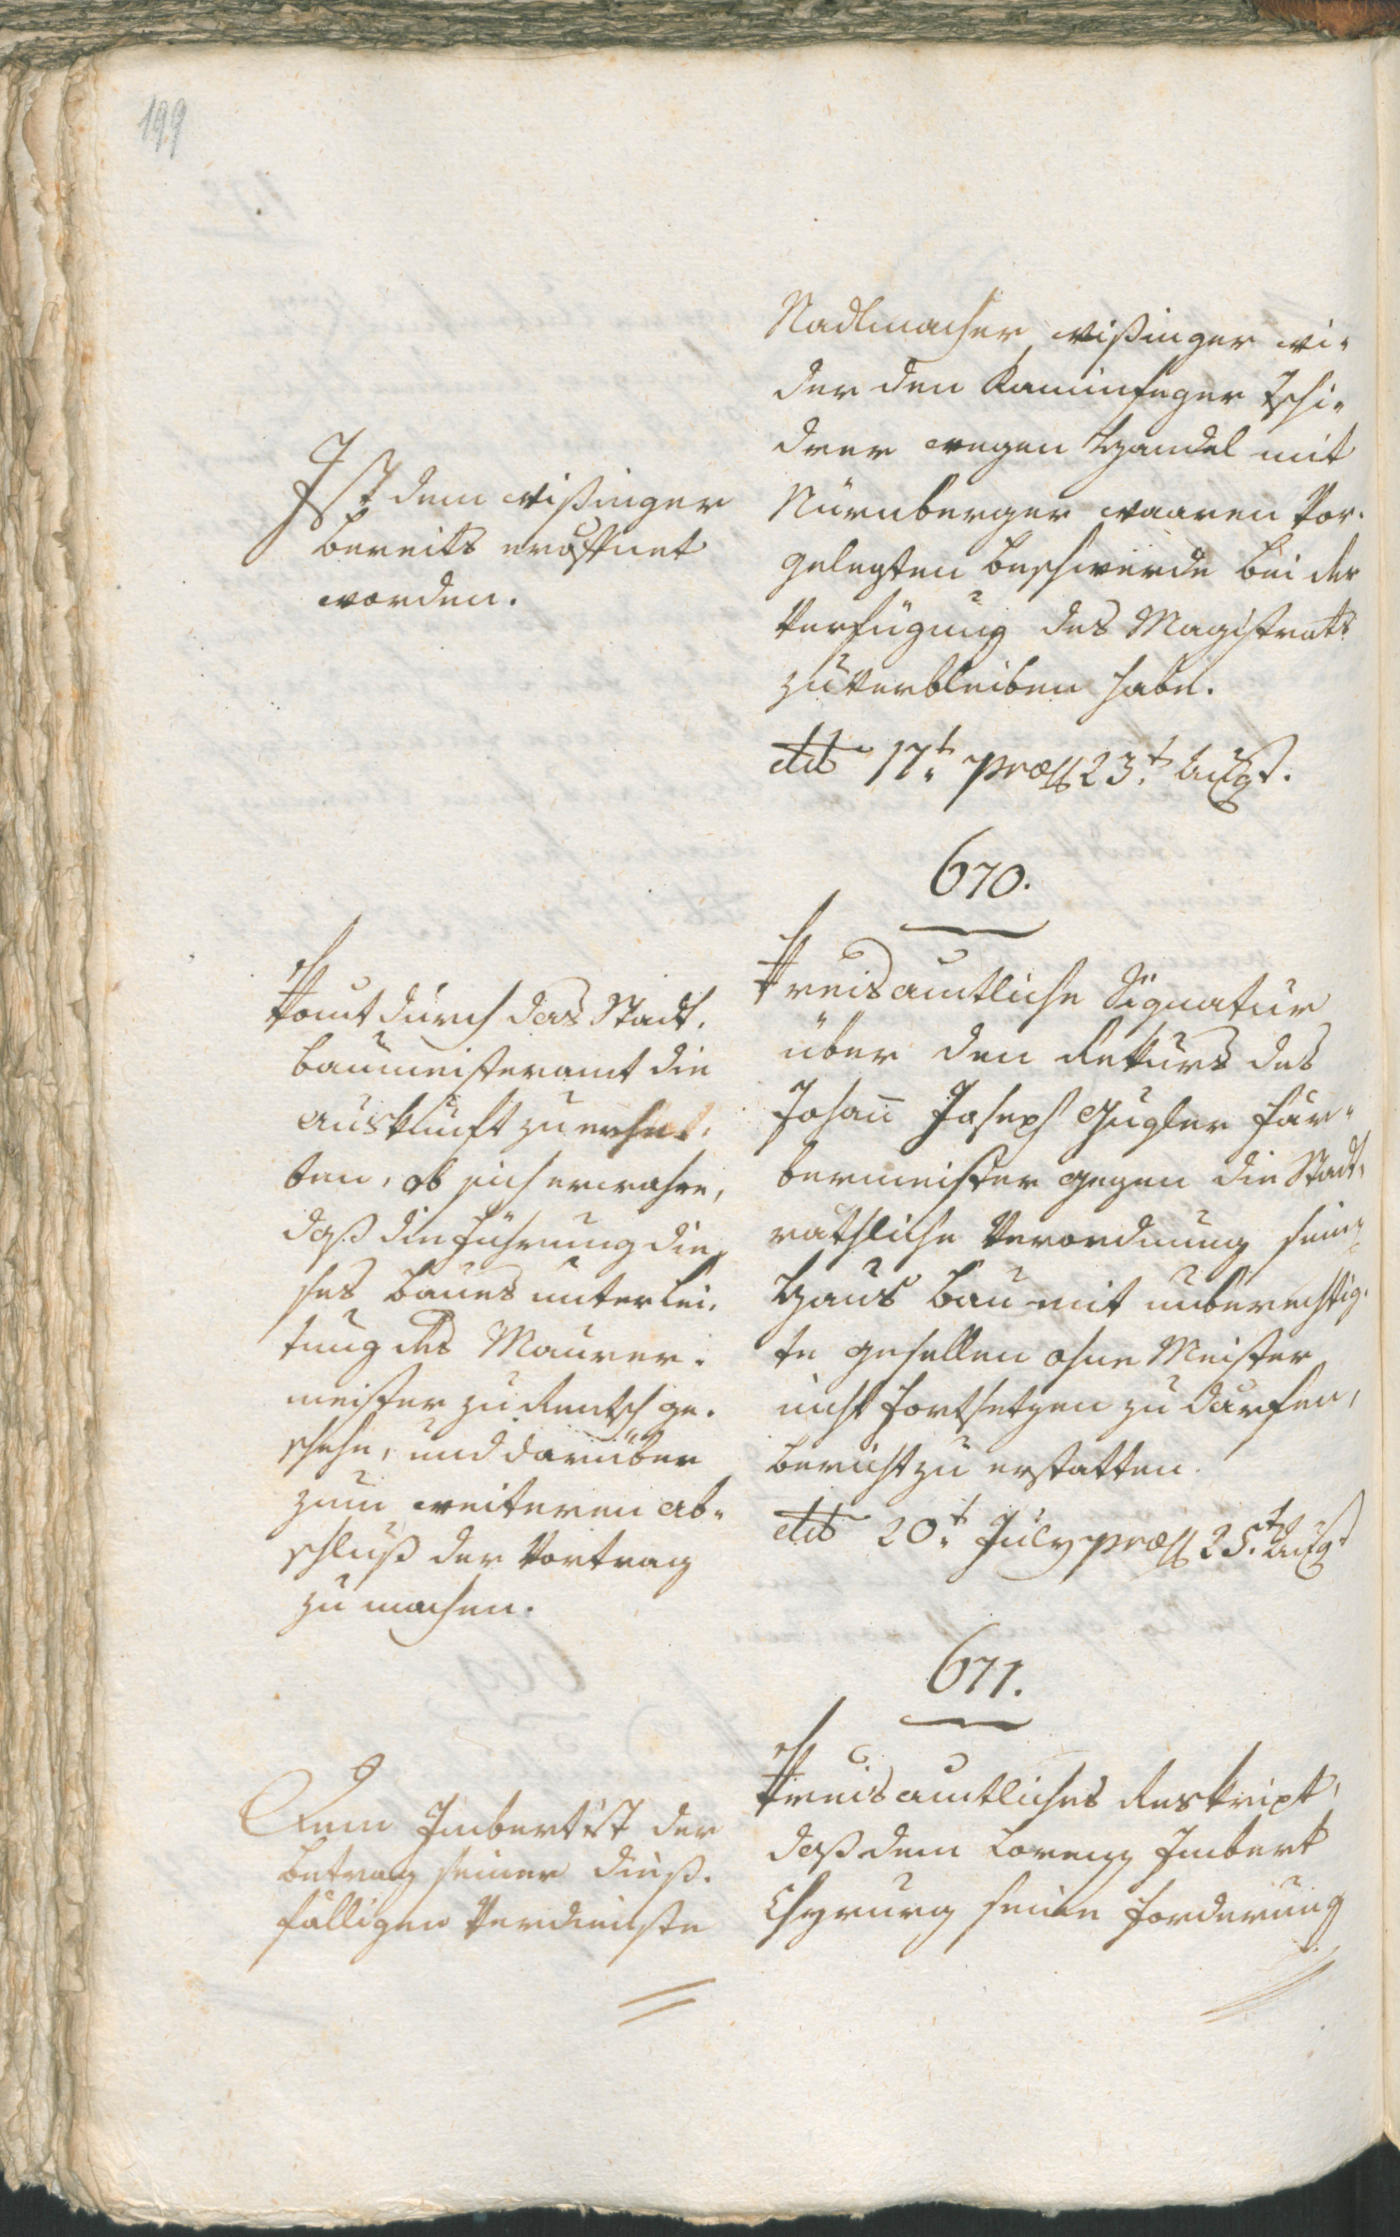 199
Nadlmacher Wißinger wi-
der den Kaminfeger Tschi-
drer wegen Handel mit
Nürnberger Waaren vor-
gelegten Beschwerde bei der
Verfügung des Magistrats
zu verbleiben habe.
ddo 17t. præs 23t. Augst.
Ist dem Wißinger
bereits eröffnet
worden.
670.
Kreisamtliche Signatur
über den Rekurs des
Johann Joseph Gugler Fär-
bermeister gegen die Stadt-
räthliche Verordnung sein
Haus Bau mit unberechtig-
te Gesellen ohne Meister
nicht fortsetzen zu därfen,
Bericht zu erstatten.
ddo 20t. July præs 25t. Augst
Kommt durch das Stadt-
Baumeisteramt die
Auskunft zu erhal-
ten, ob sich erwahre,
daß die Führung die-
ses Baues unter Lei-
tung des Maurer-
meister zu Rentsch ge-
schehe, und darüber
zum weiteren Ab-
schluß der Vortrag
zu machen.
671.
Kreisamtliches Reskript,
daß dem Lorenz Imbert
Chyrurg seine Forderung
Dem Imbert ist der
Betrag seiner dieß-
fälligen Verdienste